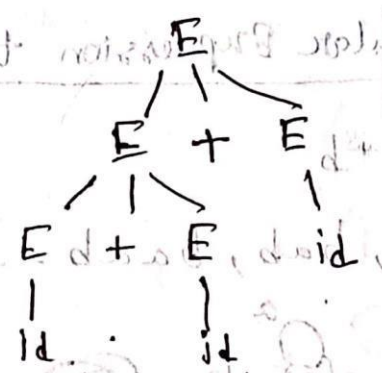 E
E + E
E + E id
id id